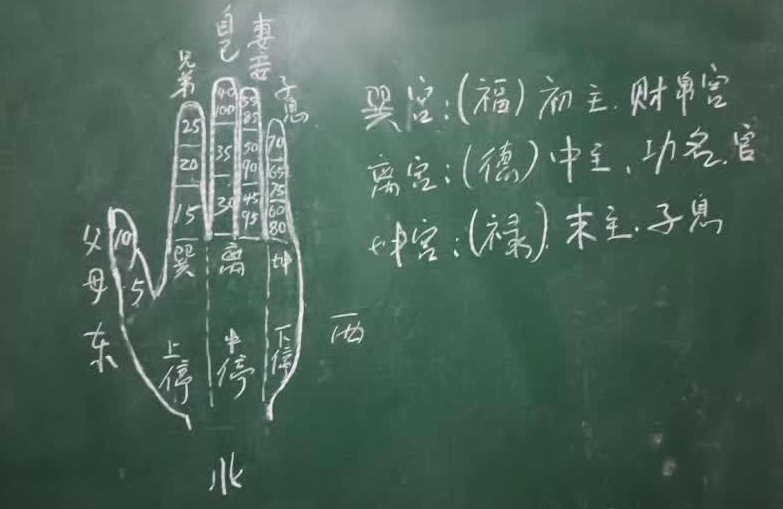 自己
妻妾
兄弟
子息
40
100
55
85
25
70
35
50
90
20
65
75
30
45
95
15
60
80
10
5
父母
巽
离
坤
东
西
上停
中停
下停
北
巽宫:(福)初主.财帛宫
离宫:(德)中主、功名.官
坤宫:(禄).末主.子息